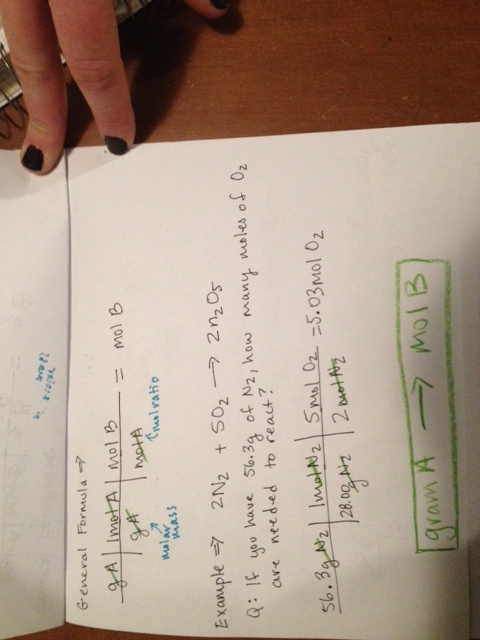 General Formula →
gA | 1molA | molB = mol B
gA | molA
molar mass
molratio
Example ⇒ 2N2 + 5O2 → 2n2O5
Q: If you have 56.3g of N2, how many moles of O2
are needed to react?
56.3g N2 | 1molN2 | 5mol O2 = 5.03mol O2
28.00g N2 | 2 mol N2
gram A → mol B